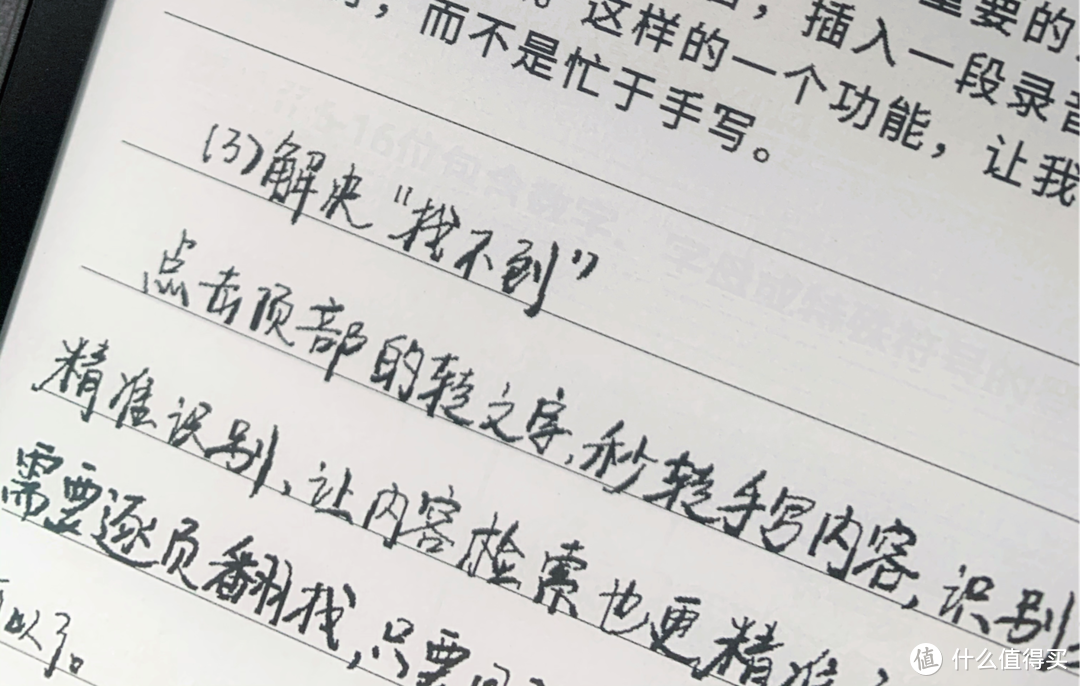 ，插入一段录音
。这样的一个功能，让我
，而不是忙于手写。
(3)解决“找不到”
点击顶部的转文字，秒转手写内容，识别
精准识别，让内容检索也更精准，
需要逐页翻找，只要
以了。
值 什么值得买